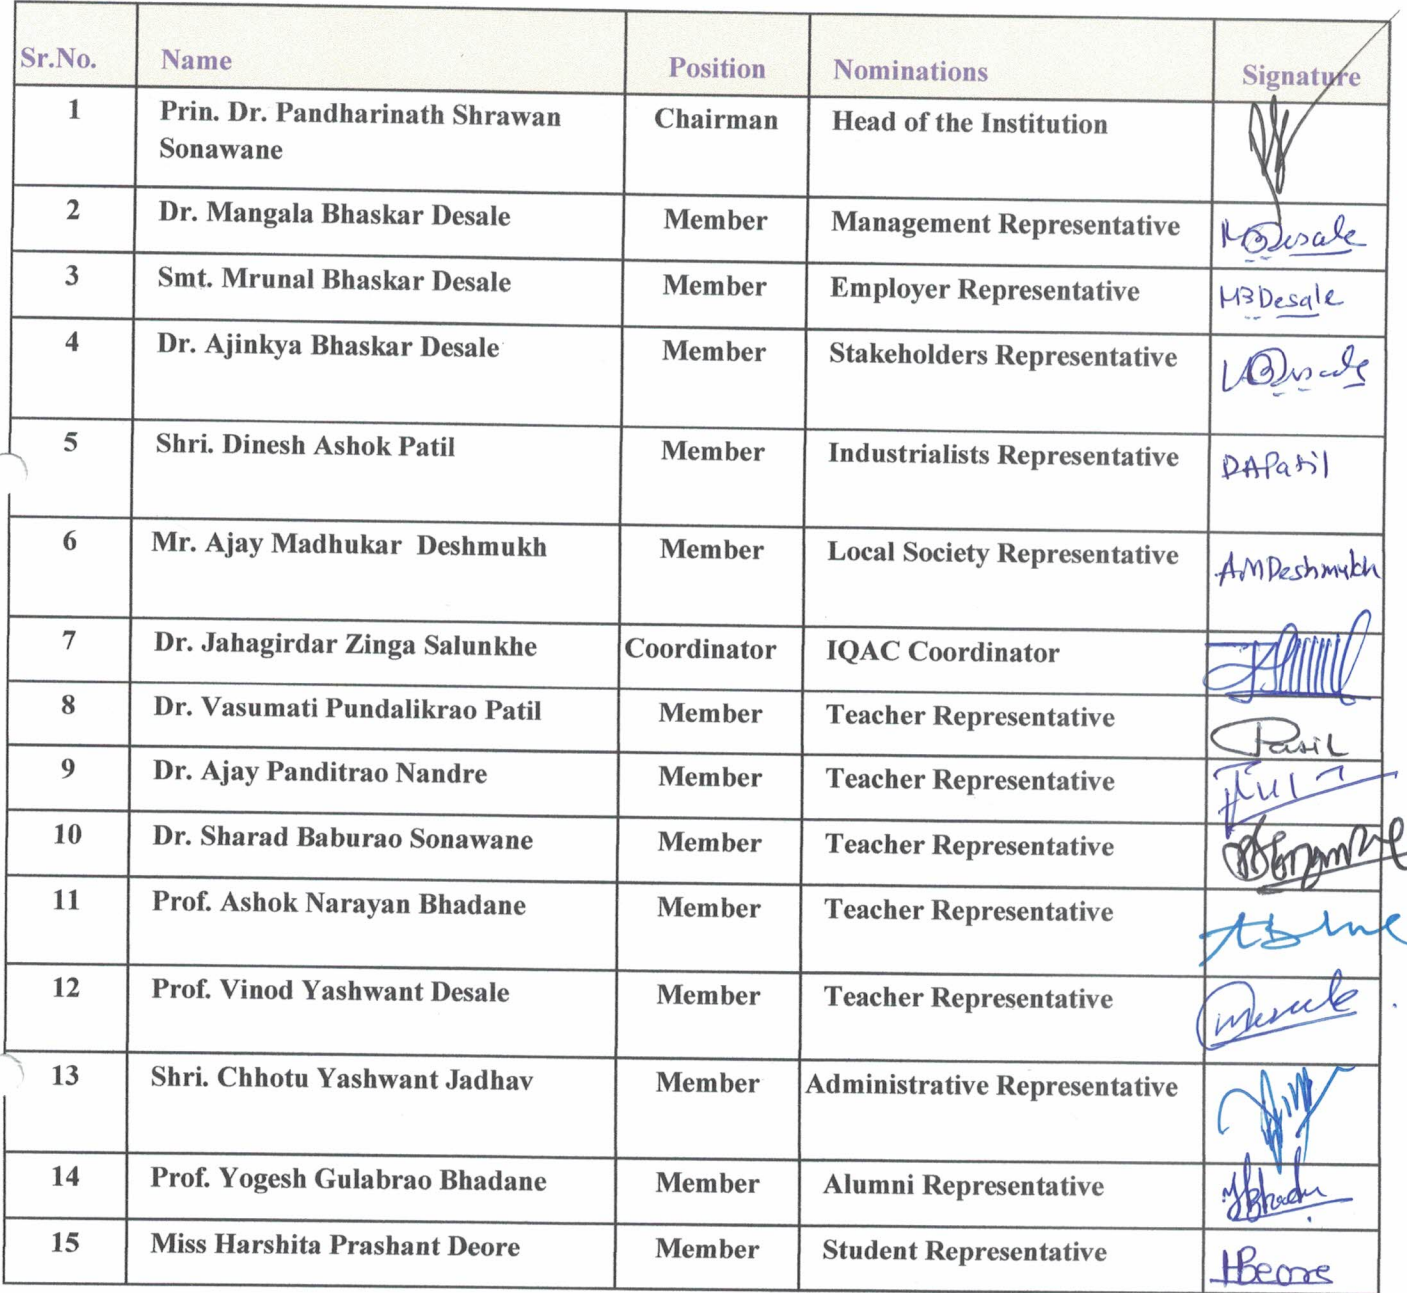 Sr.No. Name Position Nominations Signature
1 Prin. Dr. Pandharinath Shrawan Chairman Head of the Institution
Sonawane
2 Dr. Mangala Bhaskar Desale Member Management Representative MBDesale
3 Smt. Mrunal Bhaskar Desale Member Employer Representative MBDesale
4 Dr. Ajinkya Bhaskar Desale Member Stakeholders Representative
5 Shri. Dinesh Ashok Patil Member Industrialists Representative DAPatil
6 Mr. Ajay Madhukar Deshmukh Member Local Society Representative AMDeshmukh
7 Dr. Jahagirdar Zinga Salunkhe Coordinator IQAC Coordinator
8 Dr. Vasumati Pundalikrao Patil Member Teacher Representative Patil
9 Dr. Ajay Panditrao Nandre Member Teacher Representative
10 Dr. Sharad Baburao Sonawane Member Teacher Representative
11 Prof. Ashok Narayan Bhadane Member Teacher Representative
12 Prof. Vinod Yashwant Desale Member Teacher Representative
13 Shri. Chhotu Yashwant Jadhav Member Administrative Representative
14 Prof. Yogesh Gulabrao Bhadane Member Alumni Representative
15 Miss Harshita Prashant Deore Member Student Representative HDeore